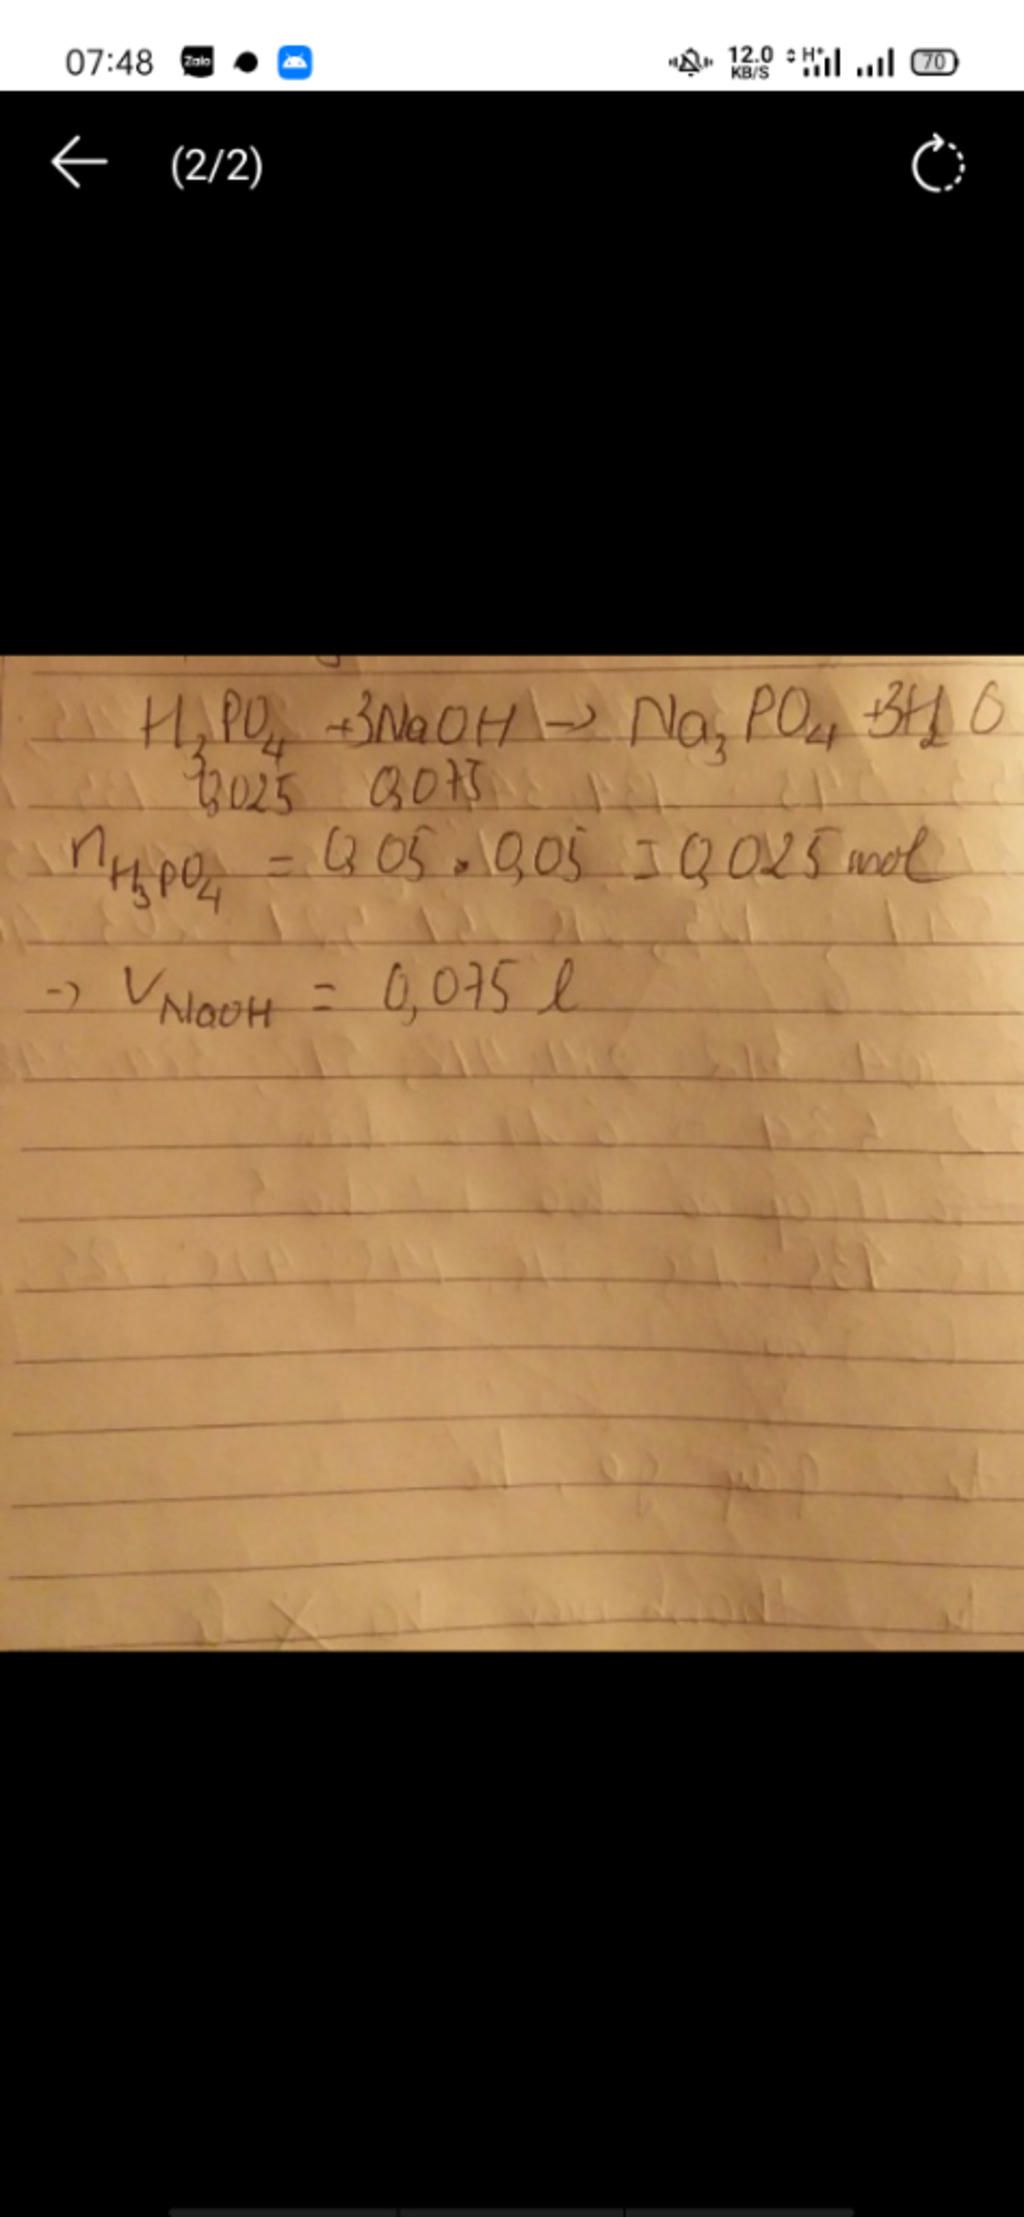 07:48 Zalo 12.0 KB/S H+ 70
(2/2)
H₃PO₄ +3NaOH -> Na₃PO₄ +3H₂O
0,025 0,075
nH₃PO₄ = 0,05 . 0,05 = 0,025 mol
-> VNaOH = 0,075 l